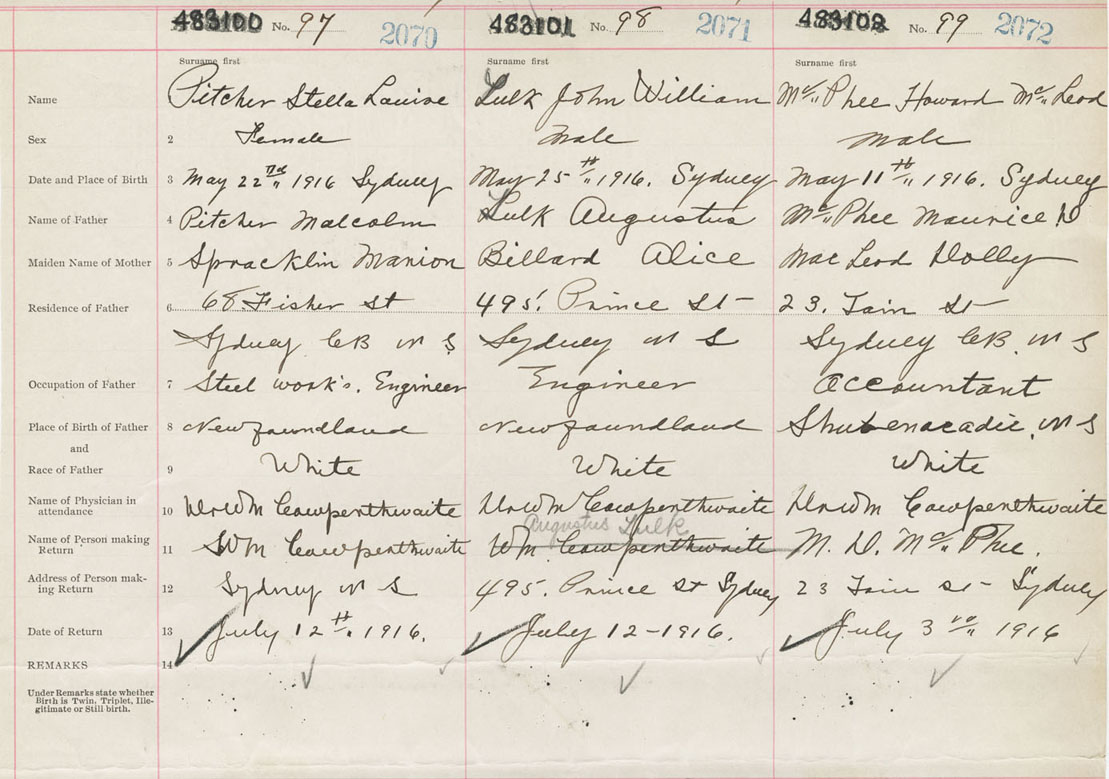 483100 No. 97 2070 483101 No. 98 2071 483102 No. 99 2072
Surname first Surname first Surname first
Name Pitcher Stella Louise Lulk John William Mc Phee Howard Mc Leod
Sex 2 Female male male
Date and Place of Birth 3 May 22nd 1916 Sydney May 25th 1916. Sydney May 11th 1916. Sydney
Name of Father 4 Pitcher Malcolm Lulk Augustus Mc Phee Maurice D
Maiden Name of Mother 5 Spracklin Manion Billard Alice Mac Leod Dolly
Residence of Father 6 68 Fisher St 495 Prince St 23. Tain St
Sydney CB N S Sydney N S Sydney CB. N S
Occupation of Father 7 Steel work's. Engineer Engineer Accountant
Place of Birth of Father 8 Newfoundland Newfoundland Shubenacadie, N S
and
Race of Father 9 White White White
Name of Physician in
attendance 10 Dr W M Cowperthwaite Dr W M Cowperthwaite Dr W M Cowperthwaite
Augustus Lulk
Name of Person making
Return 11 WM Cowperthwaite WM Cowperthwaite M. D. Mc Phee.
Address of Person mak-
ing Return 12 Sydney N S 495. Prince St Sydney 23 Tain St - Sydney
Date of Return 13 July 12th 1916. July 12-1916. July 3rd 1916
REMARKS 14
Under Remarks state whether
Birth is Twin, Triplet, Ille-
gitimate or Still birth.